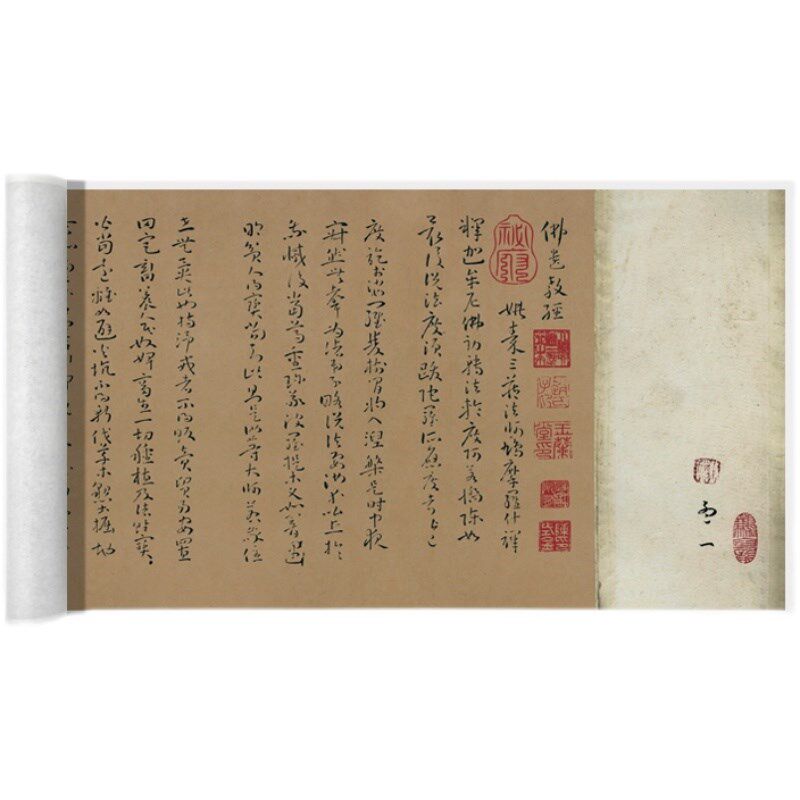 佛遺教經
姚秦三藏法師鳩摩羅什譯
釋迦牟尼佛初轉法輪度阿若憍陳如
最後說法度須跋陀羅所應度者皆已
度訖於娑羅雙樹間將入涅槃是時中夜
寂然無聲為諸弟子略說法要汝等比丘於
我滅後當尊重珍敬波羅提木叉如闇遇
明貧人得寶當知此則是汝等大師若我住
世無異此也持淨戒者不得販賣貿易安置
田宅畜養人民奴婢畜生一切種植及諸財寶
皆當遠離如避火坑不得斬伐草木墾土掘地